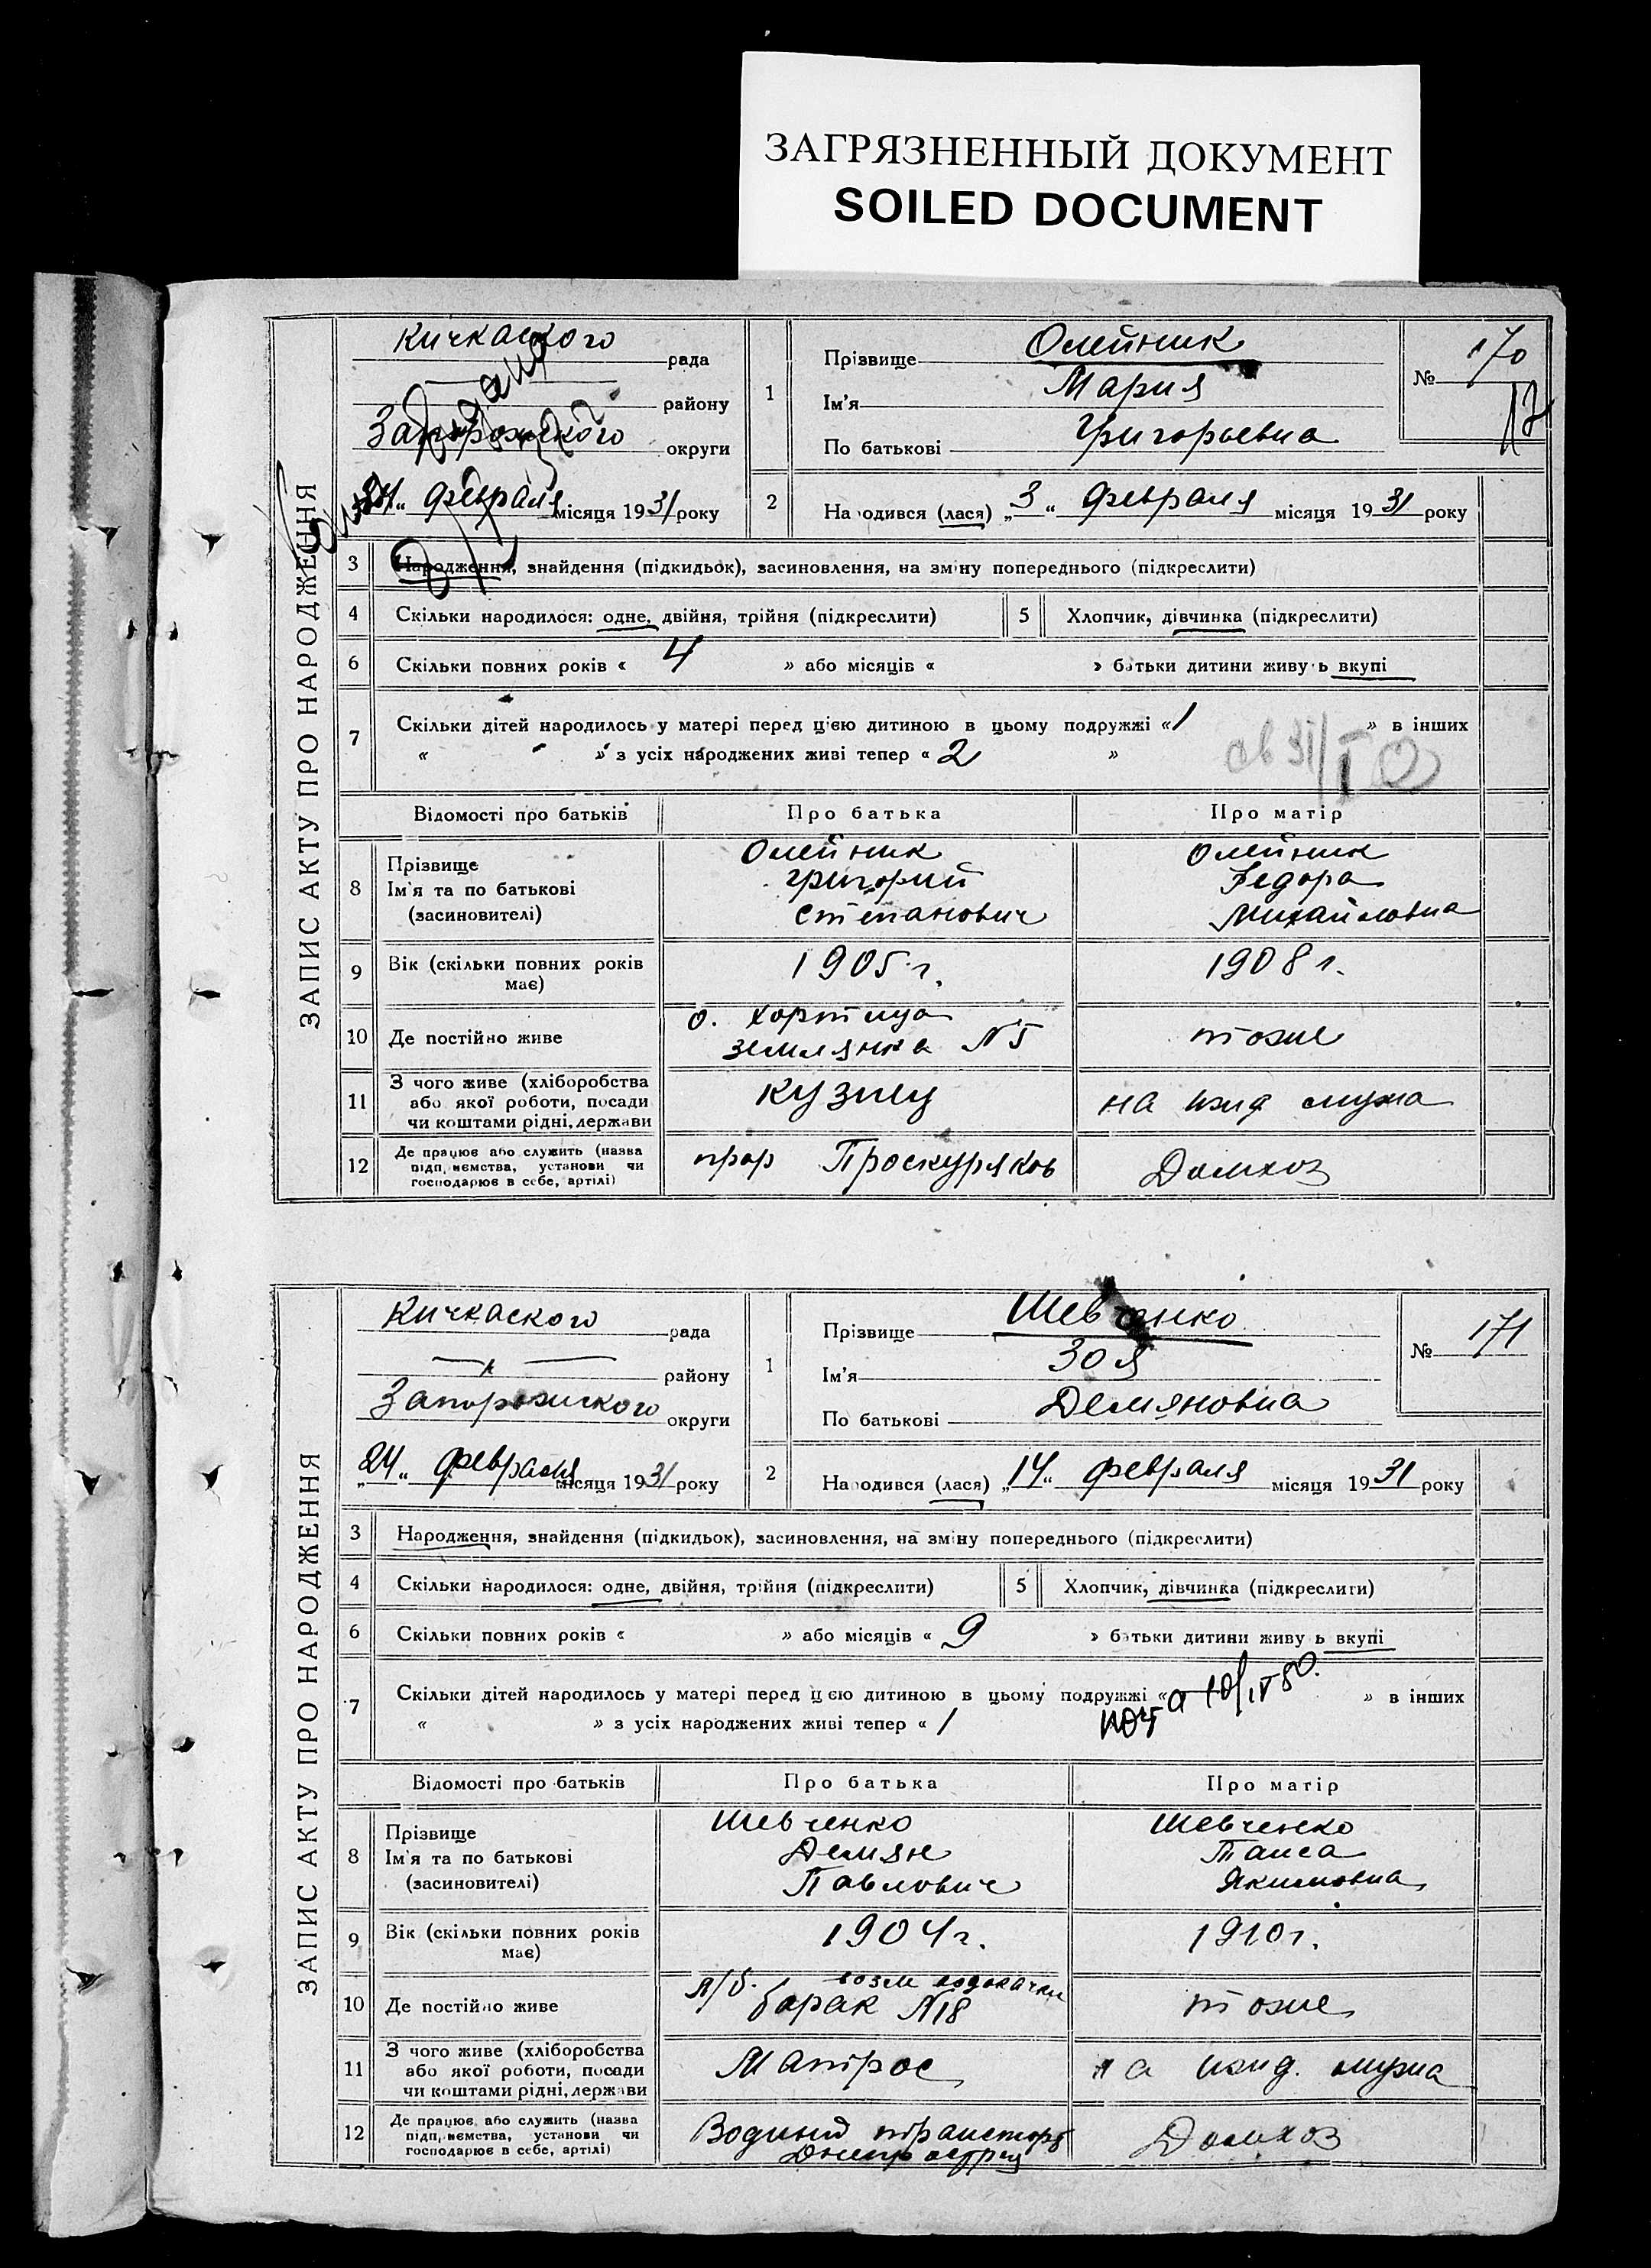 ЗАГРЯЗНЕННЫЙ ДОКУМЕНТ
SOILED DOCUMENT
ЗАПИС АКТУ ПРО НАРОДЖЕННЯ
Кичкаского рада
району
Запорожского округи
24 февраля місяця 1931 року
1
Прізвище Олейник
Ім'я Мария
По батькові Григорьевна
№ 170
2
Народився (лася) „3“ февраля місяця 1931 року
3 Народження, знайдення (підкидьок), засиновлення, на зміну попереднього (підкреслити)
4 Скільки народилося: одне, двійня, трійня (підкреслити)
5 Хлопчик, дівчинка (підкреслити)
6 Скільки повних років « 4 » або місяців « » батьки дитини живуть вкупі
7 Скільки дітей народилось у матері перед цією дитиною в цьому подружжі « 1 » в інших
« » з усіх народжених живі тепер « 2 »
Відомості про батьків Про батька Про матір
8 Прізвище
Ім'я та по батькові
(засиновителі)
Олейник
Григорий
Степанович
Олейник
Федора
Михайловна
9 Вік (скільки повних років
має)
1905 г.
1908 г.
10 Де постійно живе
о. Хортица
землянка №5
тоже
11 З чого живе (хліборобства
або якої роботи, посади
чи коштами рідні, держави
кузнец
на ижд мужа
12 Де працює або служить (назва
підприємства, установи чи
господарює в себе, артілі)
прор Проскуряков
Домхоз
ЗАПИС АКТУ ПРО НАРОДЖЕННЯ
Кичкаского рада
району
Запорожского округи
„24“ февраля місяця 1931 року
1
Прізвище Шевченко
Ім'я Зоя
По батькові Демяновна
№ 171
2
Народився (лася) „14“ февраля місяця 1931 року
3 Народження, знайдення (підкидьок), засиновлення, на зміну попереднього (підкреслити)
4 Скільки народилося: одне, двійня, трійня (підкреслити)
5 Хлопчик, дівчинка (підкреслити)
6 Скільки повних років « » або місяців « 9 » батьки дитини живуть вкупі
7 Скільки дітей народилось у матері перед цією дитиною в цьому подружжі « » в інших
« » з усіх народжених живі тепер « 1
Відомості про батьків Про батька Про матір
8 Прізвище
Ім'я та по батькові
(засиновителі)
Шевченко
Демян
Павлович
Шевченко
Таиса
Якимовна
9 Вік (скільки повних років
має)
1904 г.
1910 г.
10 Де постійно живе
возле водокачки
барак №18
тоже
11 З чого живе (хліборобства
або якої роботи, посади
чи коштами рідні, держави
Матрос
на ижд. мужа
12 Де працює або служить (назва
підприємства, установи чи
господарює в себе, артілі)
Водный транспорт
Домхоз